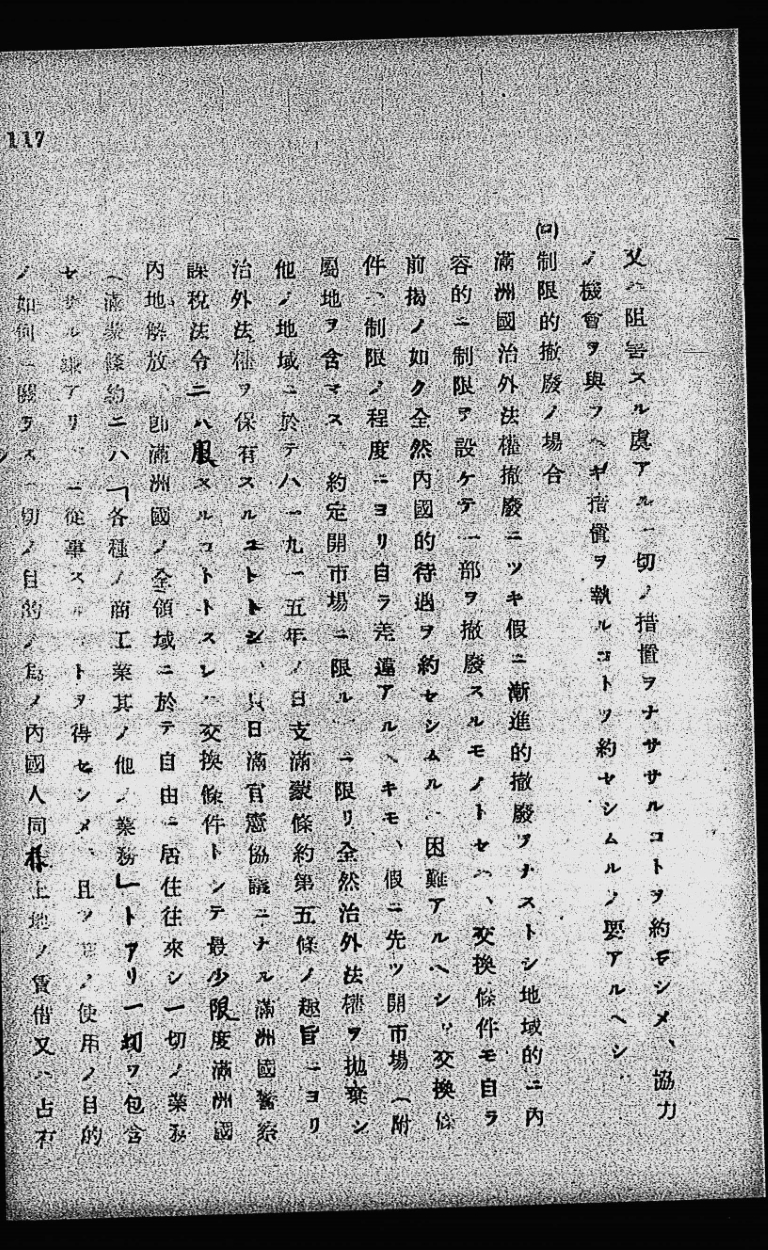 117
又ハ阻害スル虞アル一切ノ措置ヲナササルコトヲ約セシメ、協力
ノ機會ヲ與フヘキ措置ヲ執ルコトヲ約セシムルノ要アルヘシ
(ロ)制限的撤廢ノ場合
滿洲國治外法權撤廢ニツキ假ニ漸進的撤廢ヲナストシ地域的ニ內
容的ニ制限ヲ設ケテ一部ヲ撤廢スルモノトセハ、交換條件モ自ラ
前揭ノ如ク全然內國的待遇ヲ約セシムルハ困難アルヘシ 交換條
件ハ制限ノ程度ニヨリ自ラ差違アルヘキモ、假ニ先ツ開市場(附
屬地ヲ含マス 約定開市場ニ限ル ニ限リ全然治外法權ヲ拋棄シ
他ノ地域ニ於テハ一九一五年ノ日支滿蒙條約第五條ノ趣旨ニヨリ
治外法權ヲ保有スルコトトシ、只日滿官憲協議ニナル滿洲國警察
課稅法令ニハ服スルコトトスレハ 交換條件トシテ最少限度滿洲國
內地解放、卽滿洲國ノ全領域ニ於テ自由ニ居住往來シ一切ノ業務
(滿蒙條約ニハ「各種ノ商工業其ノ他ノ業務」トアリ一切ヲ包含
セサル嫌アリ ニ從事スルコトヲ得センメ、且ツ其ノ使用ノ目的
ノ如何ニ關ラス一切ノ目的ノ爲メ內國人同樣土地ノ賃借又ハ占有